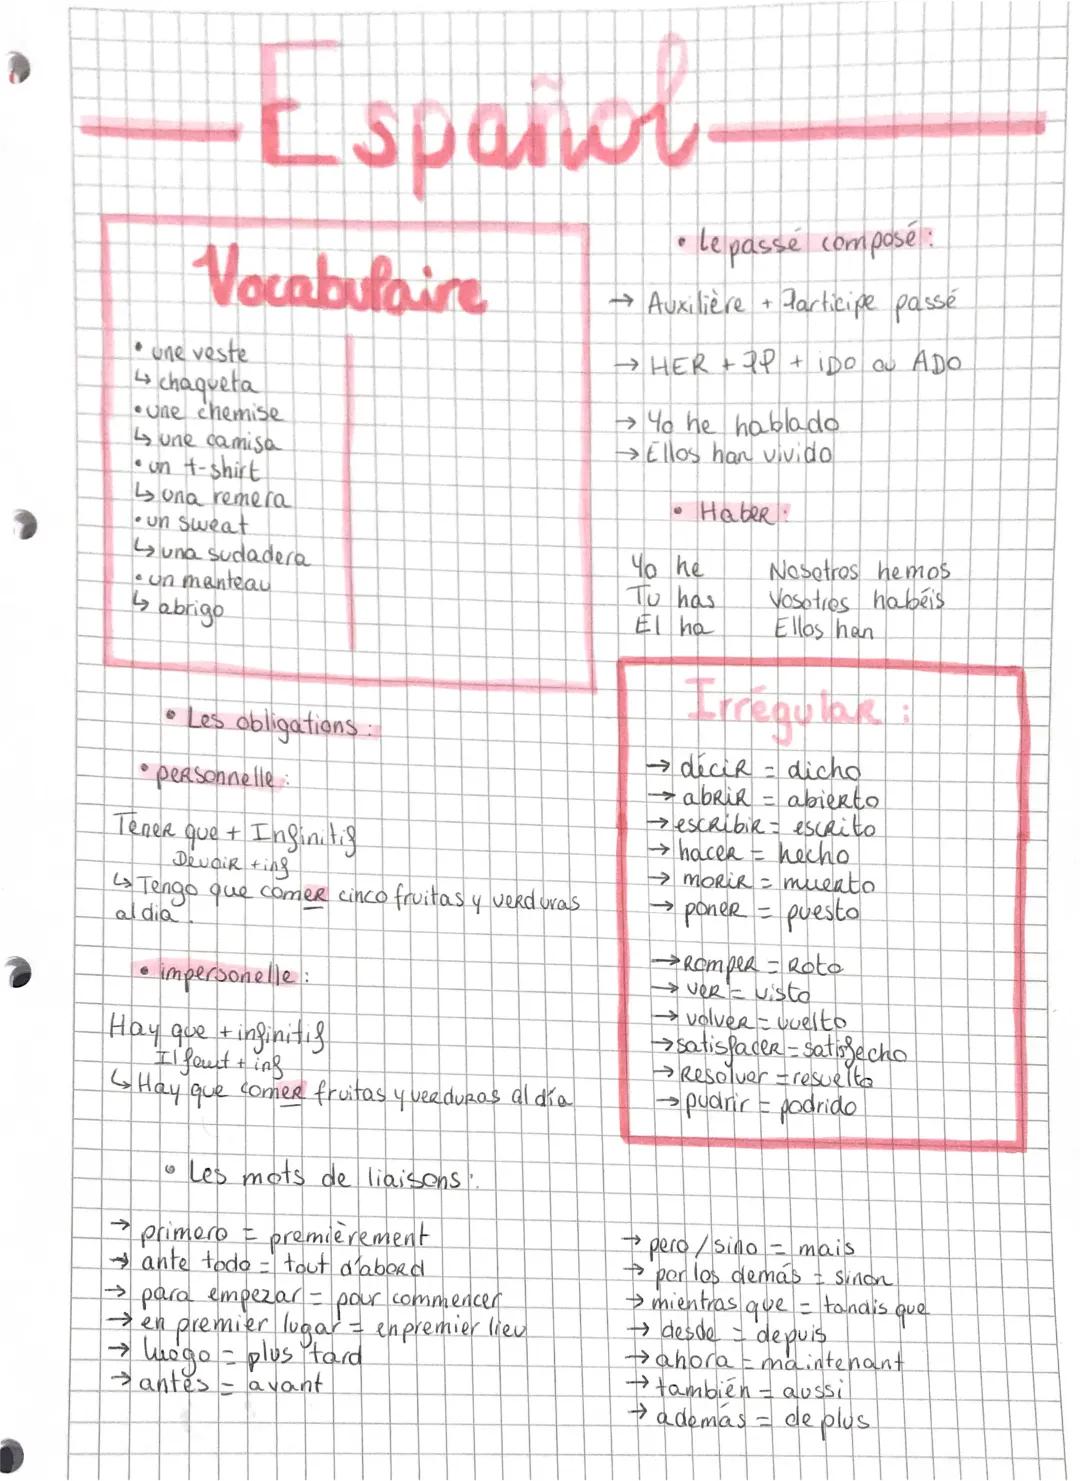 Español
Vocabulaire
• une veste
↳ chaqueta
• une chemise
↳ une camisa
• un t-shirt
↳ una remera
• un sweat
↳ una sudadera
• un manteau
↳ abrigo
• Les obligations :
• personnelle :
Tener que + Infinitif
Devoir + inf
↳ Tengo que comer cinco fruitas y verduras
al dia.
• impersonelle :
Hay que + infinitif
Il faut + inf
↳ Hay que comer fruitas y verduras al día
• Le passé composé :
→ Auxilière + Participe passé
→ HER + PP + iDO ou ADO
→ Yo he hablado
→ Ellos han vivido
• Haber :
Yo he Nosotros hemos
Tu has Vosotros habéis
El ha Ellos han
Irrégular :
→ décir = dicho
→ abrir = abierto
→ escribir = escrito
→ hacer = hecho
→ morir = muerto
→ poner = puesto
→ Romper = Roto
→ ver = visto
→ volver = vuelto
→ satisfacer = satisfecho
→ Resolver = resuelto
→ pudrir = podrido
• Les mots de liaisons :
→ primero = premièrement
→ ante todo = tout d'abord
→ para empezar = pour commencer
→ en premier lugar = en premier lieu
→ luego = plus tard
→ antes = avant
→ pero / sino = mais
→ por los demás = sinon
→ mientras que = tandis que
→ desde = depuis
→ ahora = maintenant
→ también = aussi
→ además = de plus